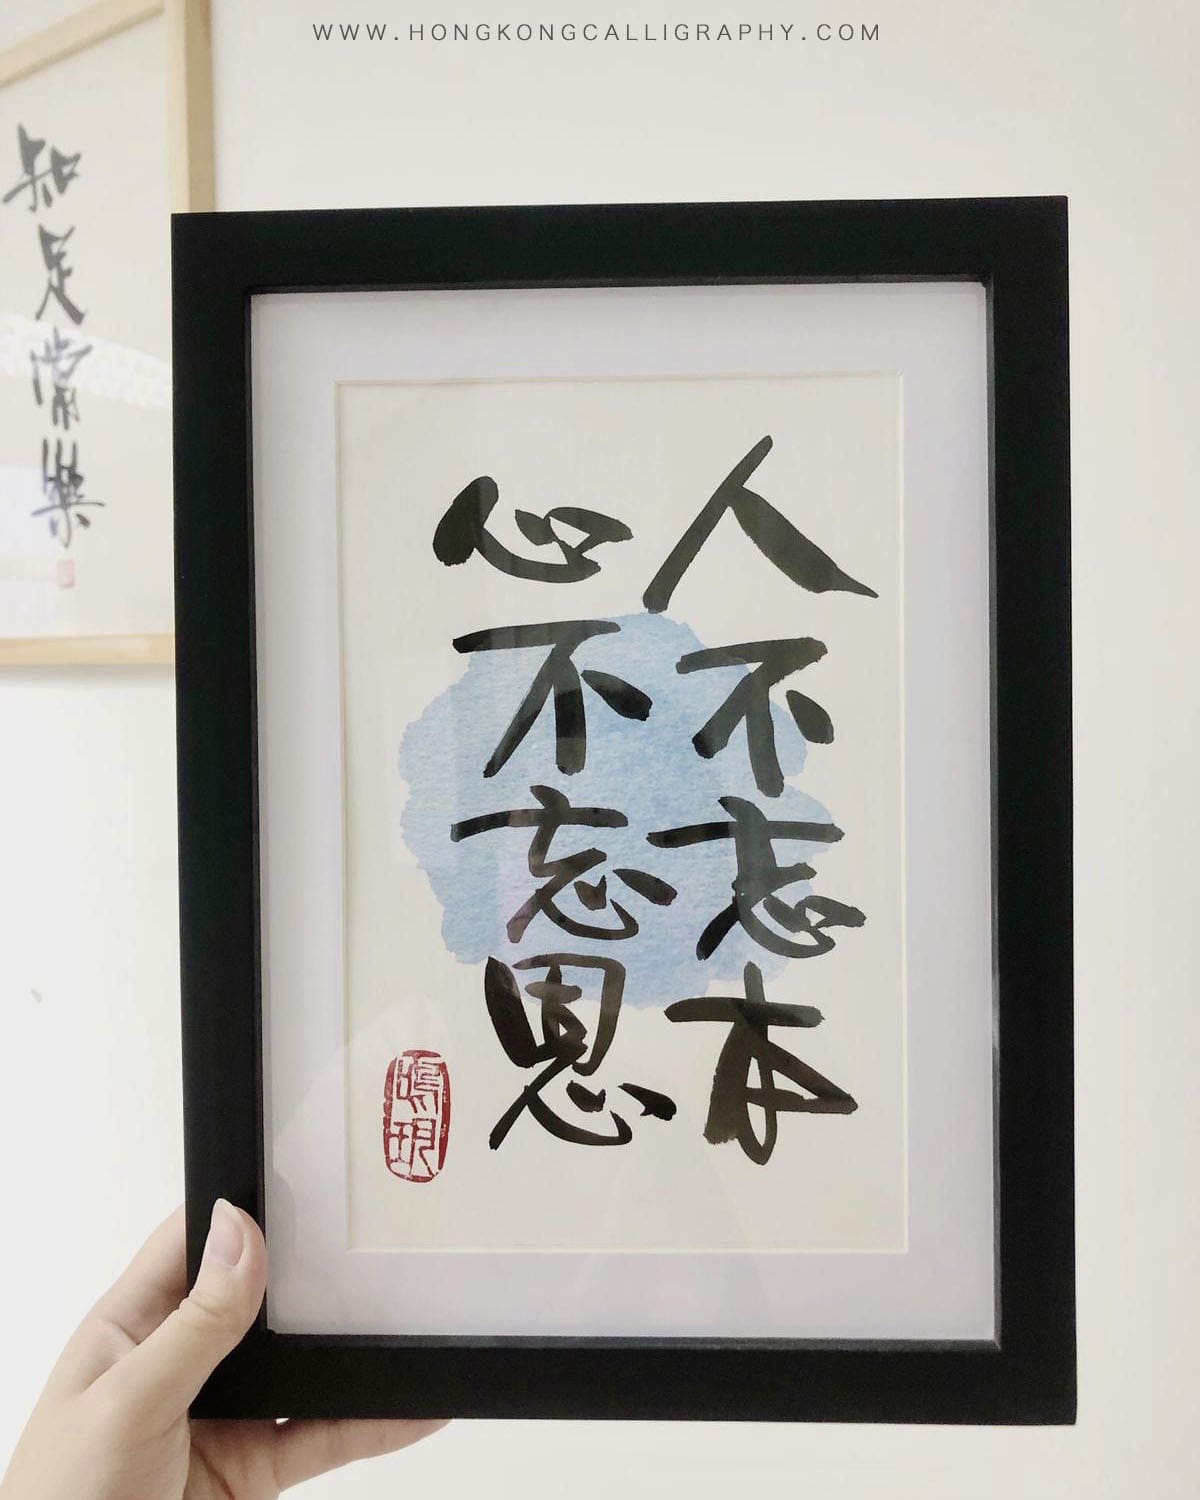 WWW.HONGKONGCALLIGRAPHY.COM
知足常樂
人不忘本
心不忘恩